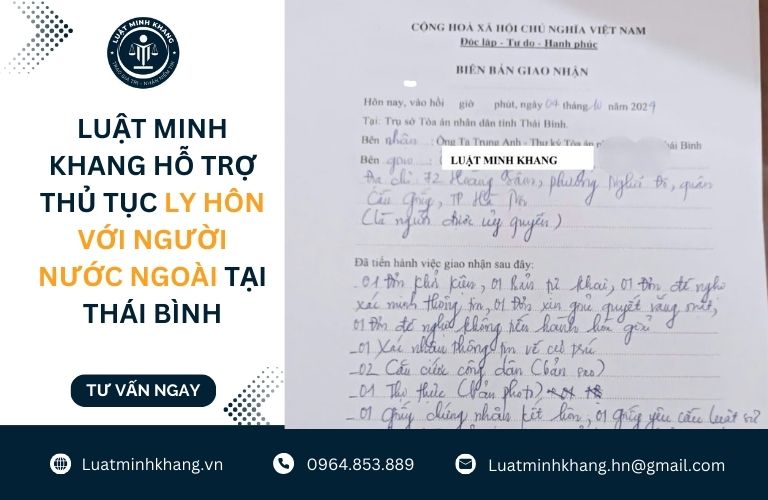 LUẬT MINH KHANG
TRAO GIÁ TRỊ - NHẬN NIỀM TIN
LUẬT MINH
KHANG HỖ TRỢ
THỦ TỤC LY HÔN
VỚI NGƯỜI
NƯỚC NGOÀI TẠI
THÁI BÌNH
TƯ VẤN NGAY
CỘNG HOÀ XÃ HỘI CHỦ NGHĨA VIỆT NAM
Độc lập - Tự do - Hạnh phúc
BIÊN BẢN GIAO NHẬN
Hôm nay, vào hồi giờ phút, ngày 04 tháng 10 năm 2024
Tại: Trụ sở Tòa án nhân dân tỉnh Thái Bình.
Bên nhận : Ông Tạ Trung Anh - Thư ký Tòa án ái Bình
Bên giao : LUẬT MINH KHANG
Địa chỉ 72 Hoàng Sâm, phường Nghĩa Đô, quận
Cầu Giấy, TP Hà Nội
(là người được uỷ quyền)
Đã tiến hành việc giao nhận sau đây:
- 01 Đơn khởi kiện, 01 Bản tự khai, 01 Đơn đề nghị
xác minh thông tin, 01 Đơn xin giải quyết vắng mặt,
01 Đơn đề nghị không tiến hành hoà giải
- 01 Xác nhận thông tin về cư trú
- 02 Căn cước công dân (bản sao)
- 01 Thị thực (bản photo)
- 01 Giấy chứng nhận kết hôn, 01 giấy yêu cầu luật sư
Luatminhkhang.vn
0964.853.889
Luatminhkhang.hn@gmail.com